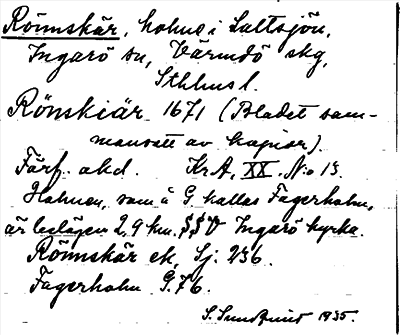 Rönnskär, holme i Saltsjön,
Ingarö sn, Värmdö skg,
Sthlms l.
Rönskiär 1671 (Bladet sam-
mansatt av kopior).
Förf. okd. KrA, XX, No 13.
Holmen, som å G kallas Fagerholm,
är belägen 2,9 km. SSV Ingarö kyrka.
Rönnskär ek. Sj. 236.
Fagerholm G.76.
S. Sundqvist 1935.